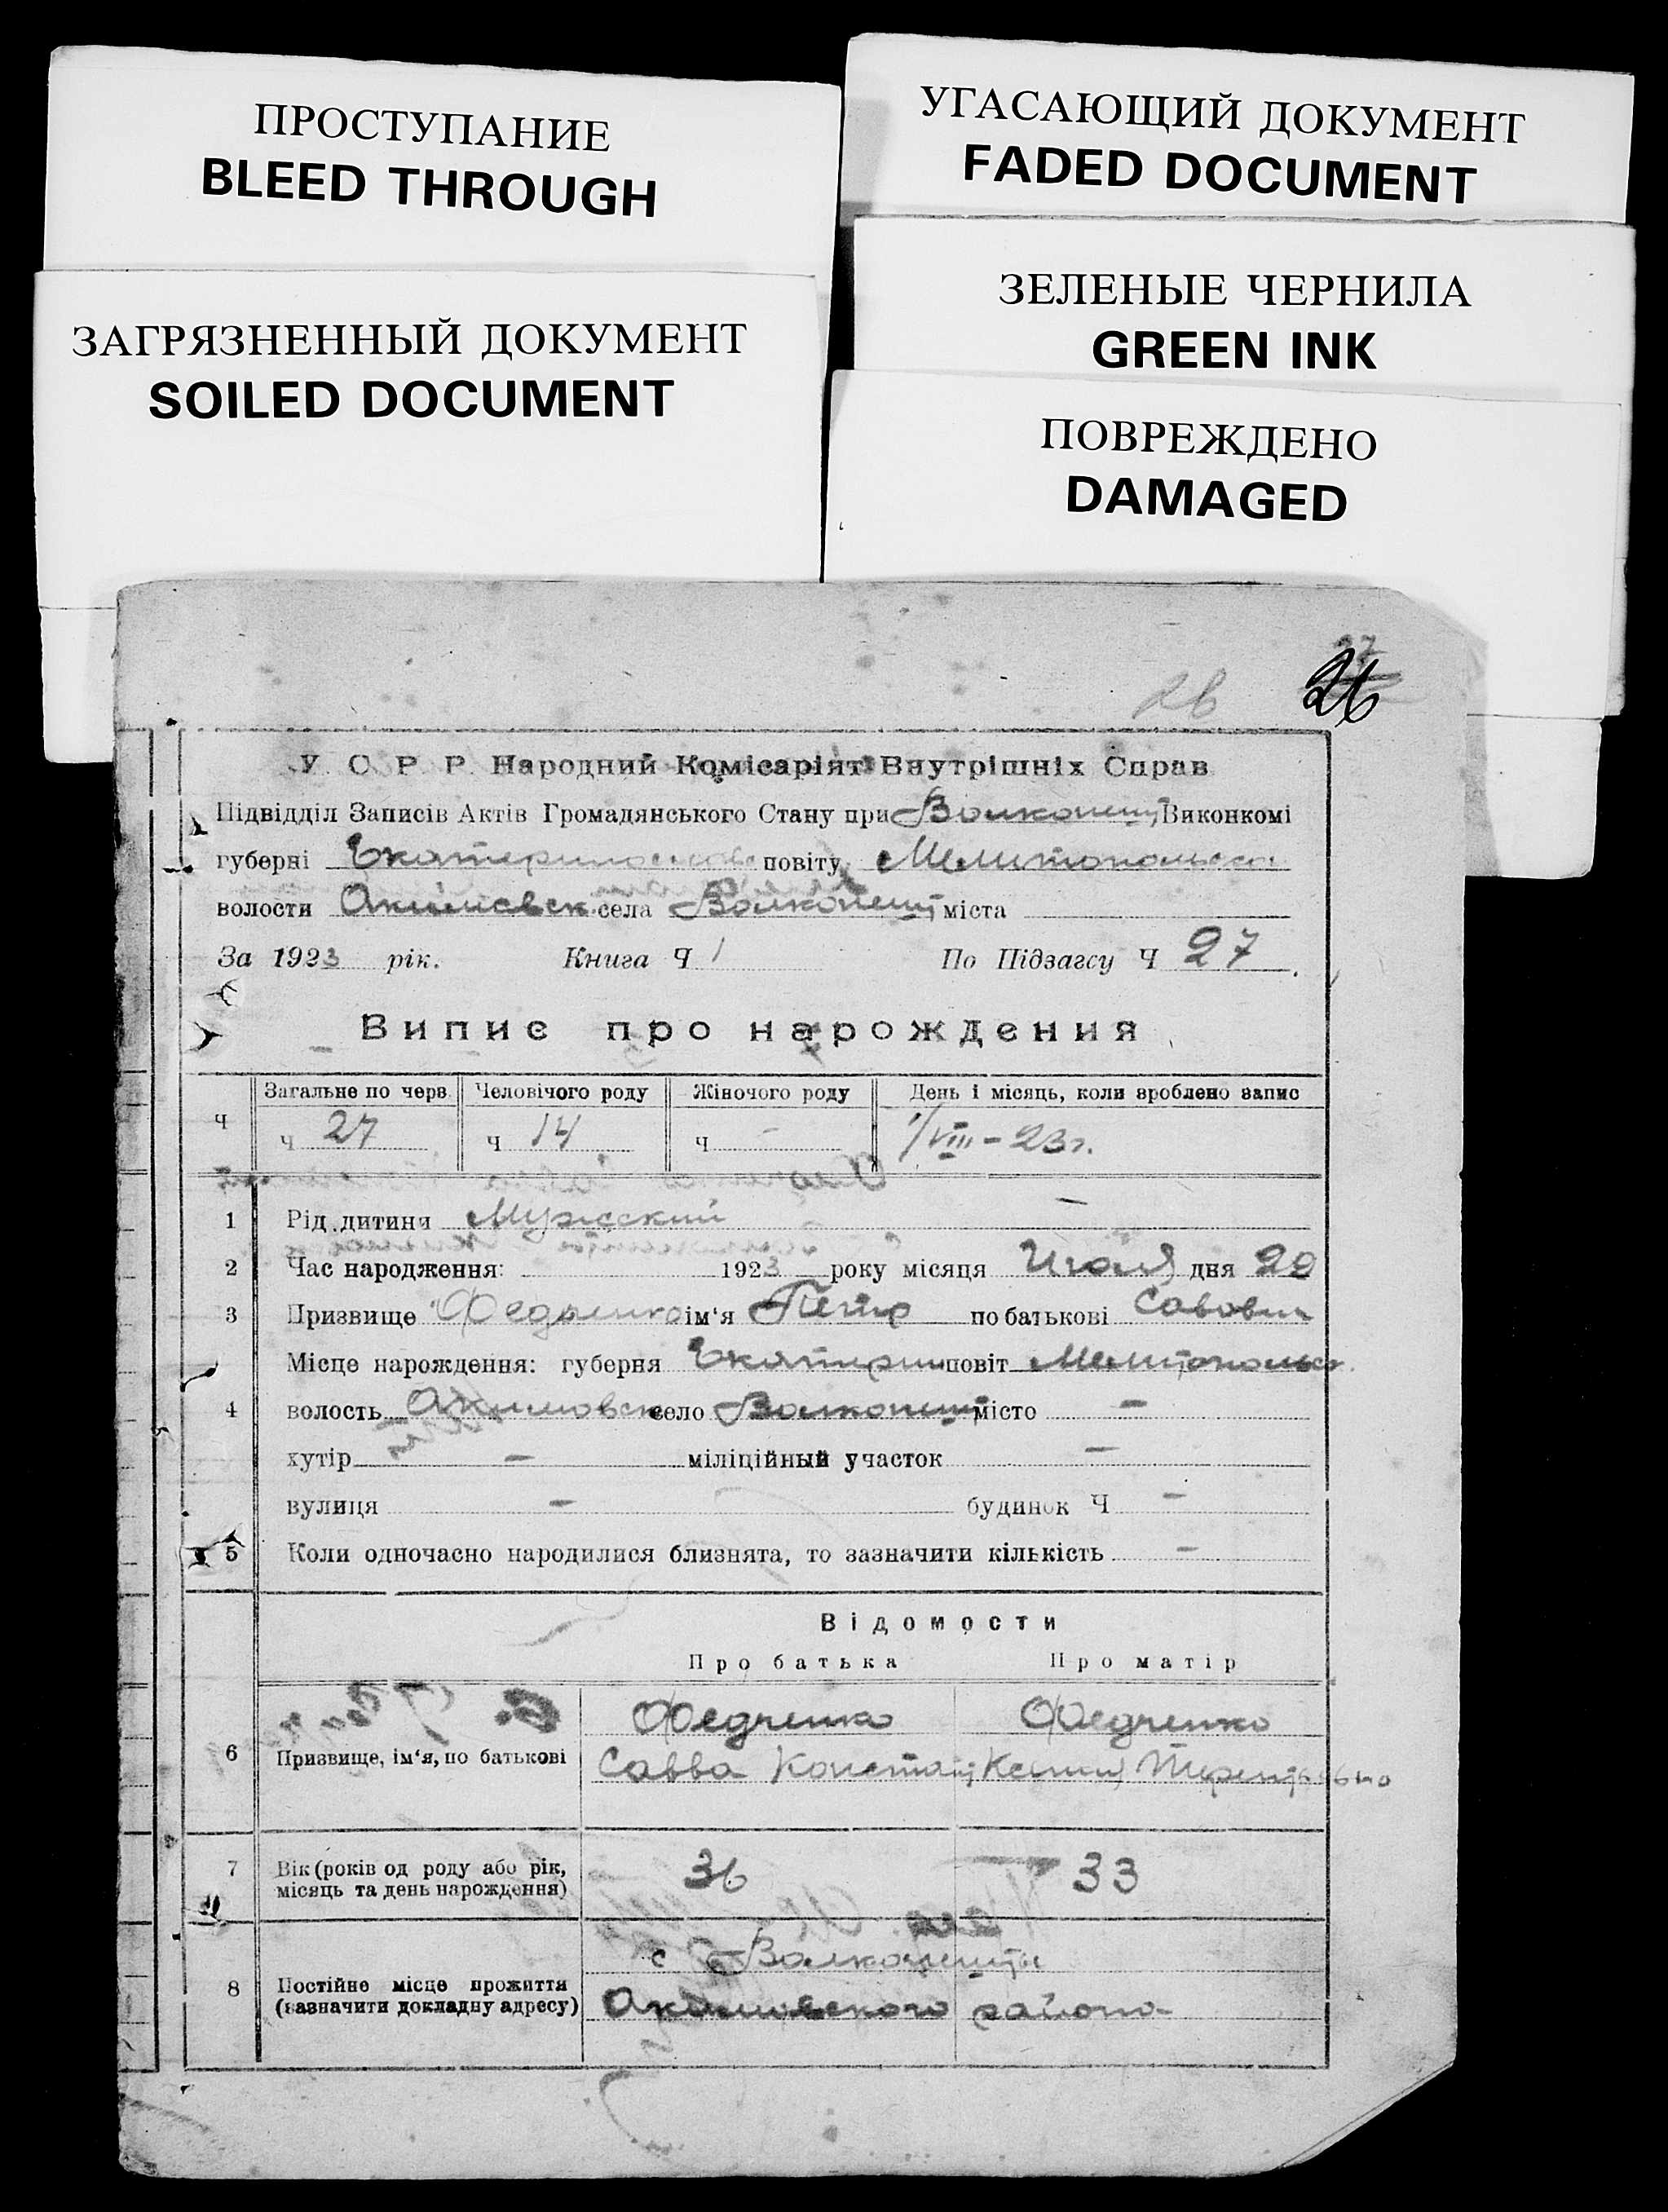 ПРОСТУПАНИЕ
BLEED THROUGH
ЗАГРЯЗНЕННЫЙ ДОКУМЕНТ
SOILED DOCUMENT
УГАСАЮЩИЙ ДОКУМЕНТ
FADED DOCUMENT
ЗЕЛЕНЫЕ ЧЕРНИЛА
GREEN INK
ПОВРЕЖДЕНО
DAMAGED
27
26 26
У. С. Р. Р. Народний Комісаріят Внутрішніх Справ
Підвідділ Записів Актів Громадянського Стану при Виконкомі
губерні повіту Мелитопольск
волости села міста
За 1923 рік. Книга Ч 1 По Підзагсу Ч 27
Випис про нарождения
Загальне по черв. Человічого роду Жіночого роду День і місяць, коли зроблено запис
Ч ч 27 ч 14 ч - 1/VIII - 23 г.
1 Рід дитини Мужеский -
2 Час народження: 1923 року місяця Июля дня 29
3 Призвище ім'я Петр по батькові Савович
Місце нарождення: губерня Екатерин повіт Мелитопольск.
4 волость Акимовск село місто -
хутір - міліційный участок -
вулиця - будинок Ч -
5 Коли одночасно народилися близнята, то зазначити кількість -
Відомости
Про батька Про матір
Федченко Федченко
6 Призвище, ім'я, по батькові Савва Констан Ксения
7 Вік (років од роду або рік, місяць та день нарождення) 36 33
с
8 Постійне місце прожиття (зазначити докладну адресу) Акимовского района